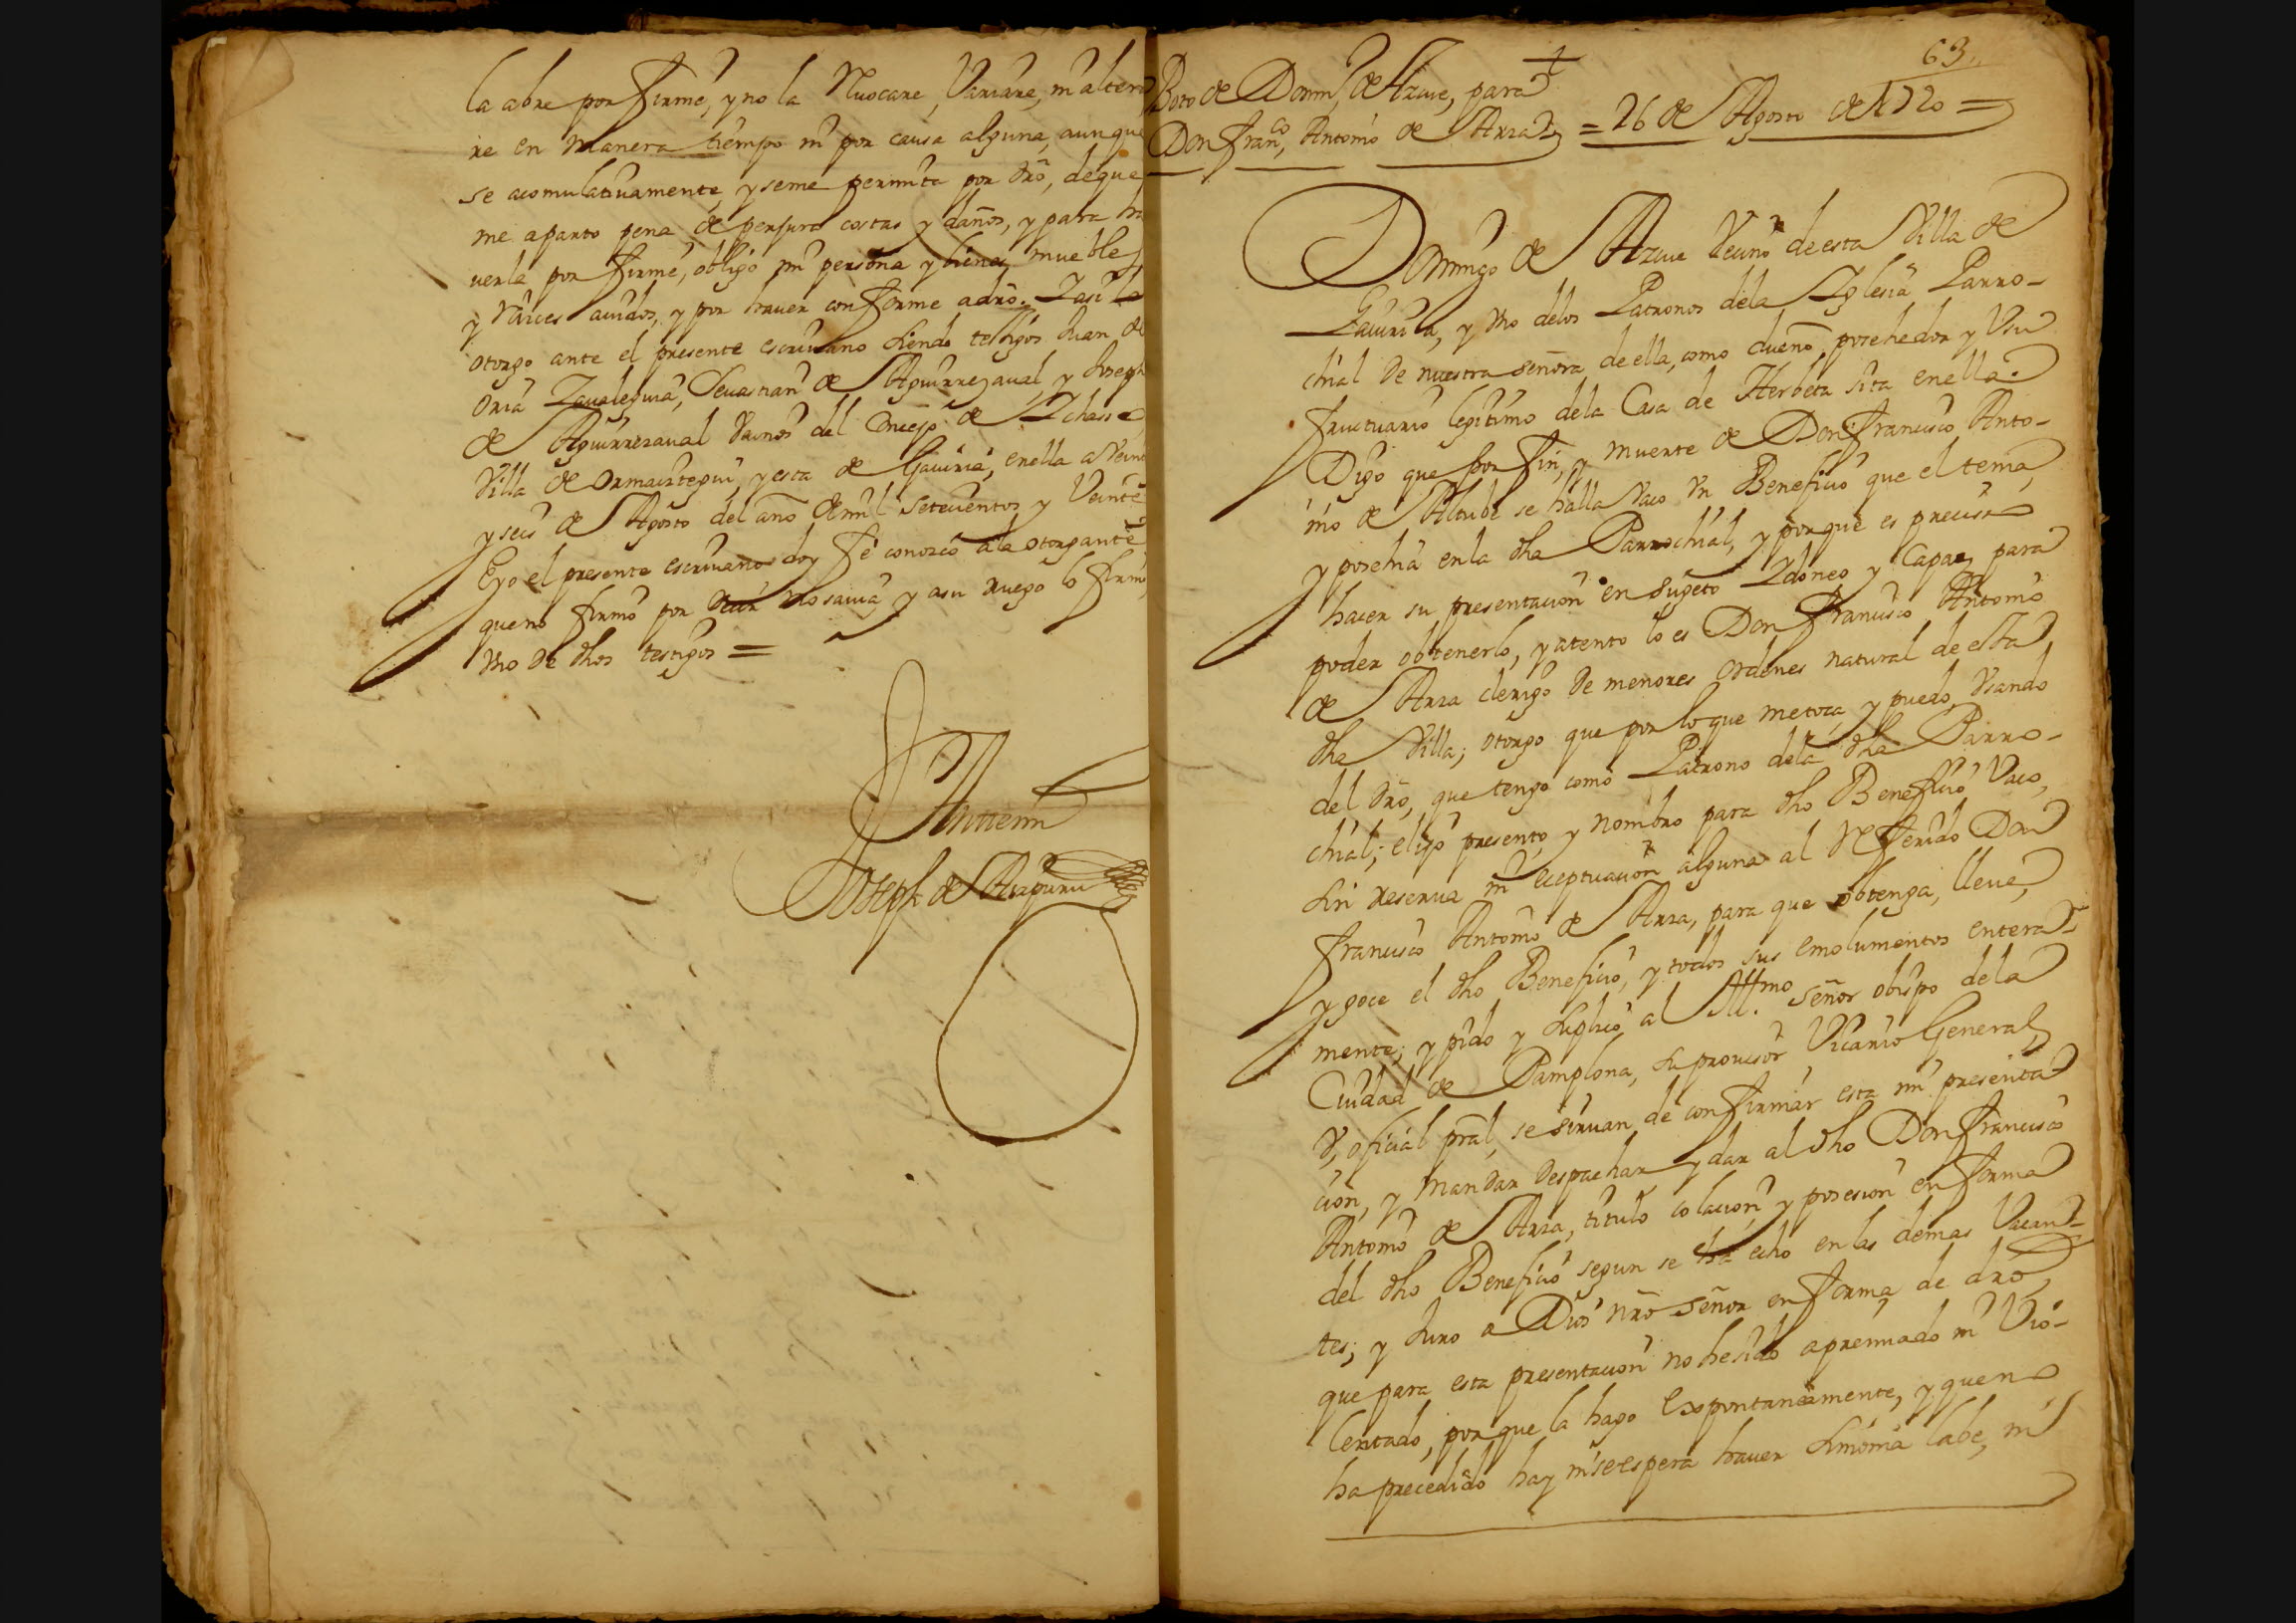 la abre por firme, y no la Revocare, Variare, ni altera
re en manera tiempo ni por causa alguna, aunque
se acomulativamente, y seme permita por dro, deque
me aparto pena de perjuro costas y daños, y para ha
verla por firme, obligo mi persona y bienes muebles
y Raices auidos, y por hauer conforme adro. Yasi lo
otorgo ante el presente escriuano siendo testigos Juan de
Oria Zaualegui, Seuastian de Aguirrezaual, y Joseph
de Aguirrezaual Vecinos del Concejo de Ichaso
Villa de Ormaiztegui, y esta de Gauiria, enella a Veinte
y seis de Agosto del año de mil setecientos y Veinte
Eyo el presente escriuano doy fe conozco ala otorgante
queno firmo por decir no sauia, y asu ruego lo firmo
Vno de dhos testigos =
Antemi
Joseph de Aizpuru
63
Boto de Domin.º de Azcue, para
Don Fran.co Antonio de Arza = 26 de Agosto de 1720 =
Domingo de Azcue Vecino de esta Villa de
Gauiria, y Vno delos Patronos dela Iglesia Parro-
chial de nuestra señora de ella, como dueño, posehedor y Vsu
fructuario legitimo dela Casa de Herbeta sita enella.
Digo que por fin, y muerte de Don Francisco Anto-
nio de Altube se halla Vaco Vn Beneficio que el tenia,
y posehia enla dha Parrochial, y porque es preciso
hacer su presentacion en sugeto Idoneo y Capaz para
poder obtenerlo, y atento lo es Don Francisco Antonio
de Arza clerigo de menores ordenes natural de esta
dha Villa; otorgo que por lo que metoca, y puedo, Vsando
del dro, que tengo como Patrono dela dha Parro-
chial; elijo presento, y nombro para dho Beneficio Vaco,
sin reserva ni eceptuacion alguna al Referido Don
Francisco Antonio de Arza, para que obtenga, lleue,
y goce el dho Beneficio, y todos sus emolumentos entera-
mente; y pido y suplico al Ill.mo señor obispo dela
Ciudad de Pamplona, su prouisor Vicario General,
V, oficial pral, se siruan de confirmar esta mi presenta
cion, y mandar despachar y dar al dho Don Francisco
Antonio de Arza, titulo colacion, y posesion en forma
del dho Beneficio segun se ha echo en las demas Vacan-
tes; y Juro a Dios nro señor en forma de dro,
que para esta presentacion no he sido apremiado ni Vio-
lentado, por que la hago Expontaneamente, y queno
ha precedido hay ni se espera hauer simonia labe, ni